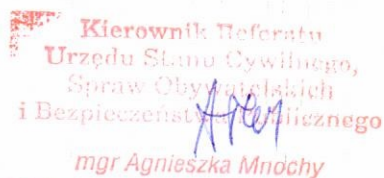 Kierownik Referatu
Urzędu Stanu Cywilnego,
Spraw Obywatelskich
i Bezpieczeństwa Publicznego
mgr Agnieszka Mnochy